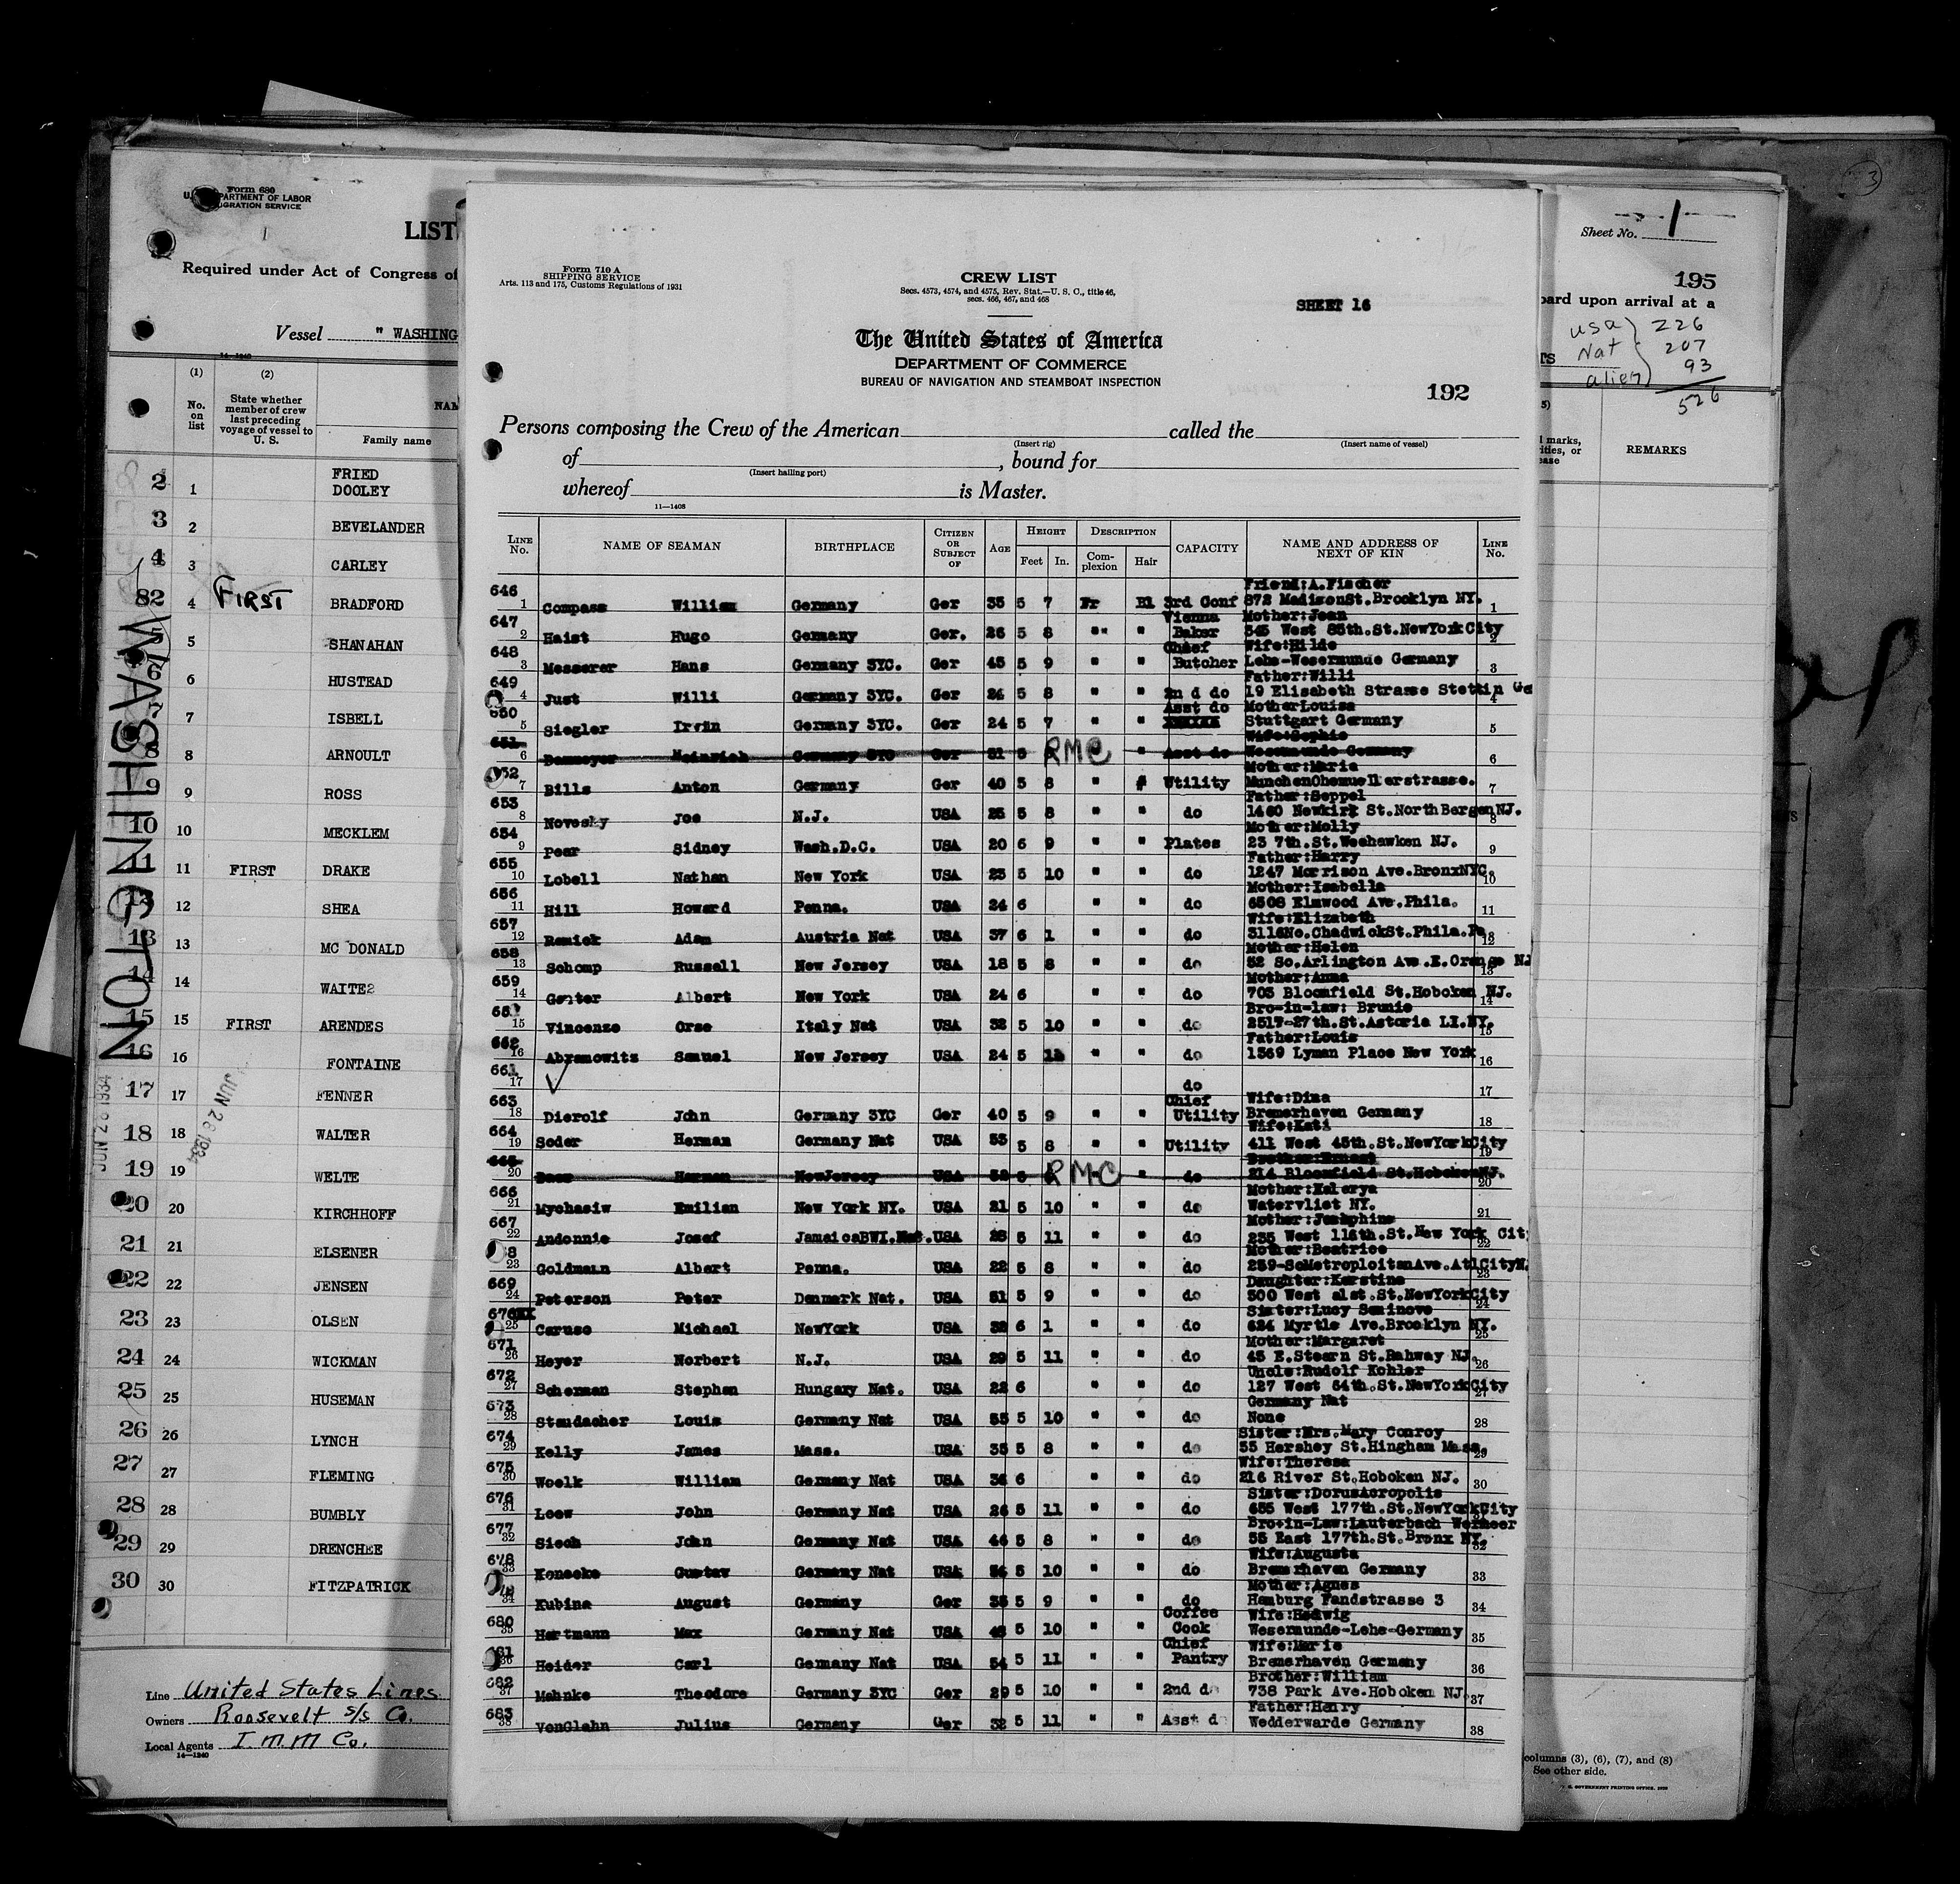 Form 680
LIST
Required under Act of Congress of
Vessel " WASHING
(1) (2)
No. on list
State whether member of crew last preceding voyage of vessel to U. S.
Family name
2 1 FRIED
DOOLEY
3 2 BEVELANDER
4 3 CARLEY
82 4 FIRST BRADFORD
5 SHANAHAN
6 HUSTEAD
7 ISBELL
8 8 ARNOULT
9 9 ROSS
10 10 MECKLEM
11 11 FIRST DRAKE
12 SHEA
13 13 MC DONALD
14 14 WAITE
15 15 FIRST ARENDES
16 16 FONTAINE
17 17 FENNER
18 18 WALTER
19 19 WELTE
20 20 KIRCHHOFF
21 21 ELSENER
22 22 JENSEN
23 23 OLSEN
24 24 WICKMAN
25 25 HUSEMAN
26 26 LYNCH
27 27 FLEMING
28 28 BUMBLY
29 29 DRENCHEE
30 30 FITZPATRICK
WASHINGTON
JUN 28 1934
JUN 28 1934
Line United States Lines
Owners Roosevelt s/s Co.
Local Agents I.M.M Co.
14—1240
Form 710 A
SHIPPING SERVICE
Arts. 113 and 175, Customs Regulations of 1931
CREW LIST
Secs. 4573, 4574, and 4575, Rev. Stat.—U. S. C., title 46,
secs. 466, 467, and 468
SHEET 16
The United States of America
DEPARTMENT OF COMMERCE
BUREAU OF NAVIGATION AND STEAMBOAT INSPECTION
192
Persons composing the Crew of the American called the
(Insert rig) (Insert name of vessel)
of , bound for
(Insert hailing port)
whereof is Master.
11—1408
LINE No. NAME OF SEAMAN BIRTHPLACE CITIZEN OR SUBJECT OF AGE HEIGHT Feet In. DESCRIPTION Complexion Hair CAPACITY NAME AND ADDRESS OF NEXT OF KIN LINE No.
Friend:A.Fischer
646 1 Compass William Germany Ger 35 5 7 Fr Bl 3rd Conf 872 MadisonSt.Brooklyn NY. 1
Vienna Mother:Jean
647 2 Haist Hugo Germany Ger. 26 5 8 " " Baker 345 West 85th.St.NewYorkCity 2
Chief Wife:Hilde
648 3 Messerer Hans Germany 3YC. Ger 45 5 9 " " Butcher Lehe-Wesermunde Germany 3
Father:Willi
649 4 Just Willi Germany 3YC. Ger 24 5 8 " " 2n d do 19 Elisabeth Strasse Stettin Ge 4
Asst do MotherLouisa
650 5 Siegler Irwin Germany 3YC. Ger 24 5 7 " " Stuttgart Germany 5
Wife:Sophie
651 6 Heinrich Germany 3YC Ger 31 5 RMC " Asst do Wesermunde Germany 6
Mother:Maria
652 7 Bills Anton Germany Ger 40 5 8 " " Utility 7
Father:Seppel
653 8 Novesky Joe N.J. USA 25 5 8 " " do 1460 Newkirk St.NorthBergenNJ. 8
Mother:Molly
654 9 Pear Sidney Wash.D.C. USA 20 6 9 " " Plates 23 7th.St.Weehawken NJ. 9
Father:Harry
655 10 Lobell Nathan New York USA 23 5 10 " " do 1247 Morrison Ave.BronxNYC. 10
Mother:Isabella
656 11 Hill Howard Penna. USA 24 6 " " do 6508 Elmwood Ave.Phila. 11
Wife:Elizabeth
657 12 Remick Adam Austria Nat USA 37 6 1 " " do 3116No.ChadwickSt.Phila.Pa 12
Mother:Helen
658 13 Schomp Russell New Jersey USA 18 5 8 " " do 52 So.Arlington Ave.E.Orange NJ 13
Mother:Anna
659 14 Albert New York USA 24 6 " " do 703 Bloomfield St.Hoboken NJ. 14
Bro-in-law: Brunie
15 Vincenze Orse Italy Nat USA 32 5 10 " " do 2517-27th.St.Astoria LI.NY. 15
Father:Louis
662 16 Abramowitz Samuel New Jersey USA 24 5 " " do 1369 Lyman Place New York 16
661 17 ✓ do 17
Chief Wife:Dina
663 18 Dierolf John Germany 3YC Ger 40 5 9 " " Utility Bremerhaven Germany 18
Wife:Kati
664 19 Soder Herman Germany Nat USA 53 5 8 " " Utility 411 West 45th.St.NewYorkCity 19
Brother:Ernest
665 20 Herman NewJersey USA RMC " do 214 Bloomfield St.HobokenNJ. 20
Mother:Katerya
666 21 Mychasiw Emilian New York NY. USA 21 5 10 " " do Watervliet NY. 21
Mother:Josephine
667 22 Andonnie Josef JamaicaBWI.Nat.USA 28 5 11 " " do 235 West 116th.St.New York Cit 22
Mother:Beatrice
8 23 Goldmann Albert Penna. USA 22 5 8 " " do 259-SoMetroploitanAve.AtlCityN. 23
Daughter:Kerstine
669 24 Peterson Peter Denmark Nat. USA 51 5 9 " " do 500 West 41st.St.NewYorkCity 24
Sister:Lucy
670 25 Caruso Michael NewYork USA 32 6 1 " " do 624 Myrtle Ave.Brooklyn NY. 25
Mother:Margaret
671 26 Heyer Norbert N.J. USA 29 5 11 " " do 45 E.Stearn St.Rahway NJ. 26
Uncle:Rudolf Kohler
672 27 Scherman Stephen Hungary Nat. USA 22 6 " " do 127 West 64th.St.NewYorkCity 27
Germany Nat
673 28 Staudacher Louis Germany Nat USA 55 5 10 " " do None 28
Sister:Mrs.Mary Conroy
674 29 Kelly James Mass. USA 35 5 8 " " do 55 Hershey St.Hingham Mass. 29
Wife:Theresa
675 30 Woelk William Germany Nat USA 34 6 " " do 216 River St.Hoboken NJ. 30
Sister:DorusAcropolis
676 31 Loew John Germany Nat USA 26 5 11 " " do 655 West 177th.St.NewYorkCity 31
Bro-in-Law:Lauterbach Werneer
677 32 Siech John Germany Nat USA 46 5 8 " " do 55 East 177th.St.Bronx NY. 32
Wife:Augusta
678 33 Konecke Gustav Germany Nat USA 56 5 10 " " do Bremerhaven Germany 33
Mother:Agnes
34 Kubina August Germany Ger 35 5 9 " " do Hamburg Fandstrasse 3 34
Coffee Wife:Hedwig
680 35 Hartmann Max Germany Nat USA 48 5 10 " " Cook Wesermunde-Lehe-Germany 35
Chief Wife:Marie
681 36 Heider Carl Germany Nat USA 54 5 11 " " Pantry Bremerhaven Germany 36
Brother:William
682 37 Mahnke Theodore Germany 3YC Ger 29 5 10 " " 2nd do 738 Park Ave.Hoboken NJ. 37
Father:Henry
683 38 VonGlahn Julius Germany Ger 32 5 11 " " Asst d Wedderwarde Germany 38
Sheet No. 1
195
oard upon arrival at a
usa 226
Nat 207
alien 93
526
REMARKS
columns (3), (6), (7), and (8)
See other side.
3